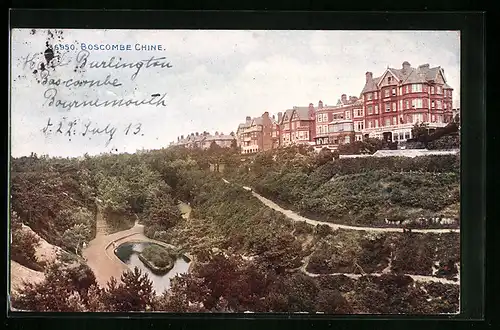 6950. BOSCOMBE CHINE.
Hotel Burlington
Boscombe
Bournemouth
22 July 13